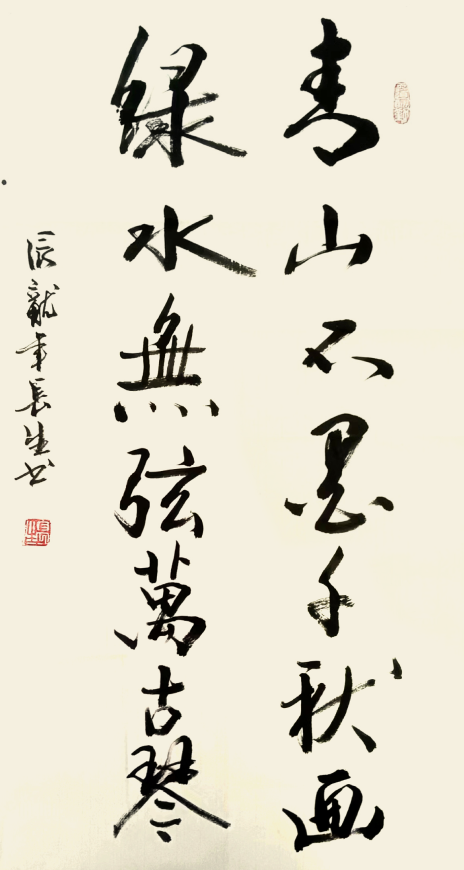 青山不墨千秋画
绿水無弦萬古琴
辰龍年長生书